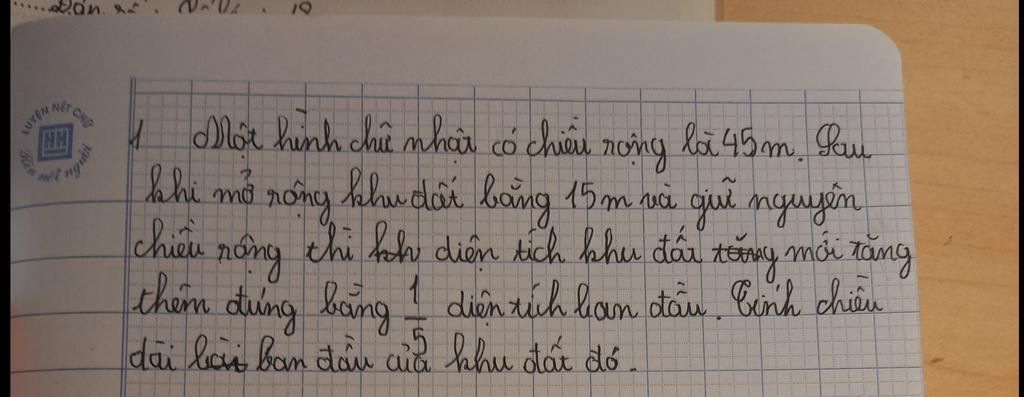 1 Một hình chữ nhật có chiều rộng là 45m. Sau
khi mở rộng khu đất bằng 15m và giữ nguyên
chiều rộng thì diện tích khu đất mới tăng
thêm đúng bằng 1/5 diện tích ban đầu. Tính chiều
dài ban đầu của khu đất đó.
LUYỆN NÉT CHỮ
HH
RÈN NẾT NGƯỜI